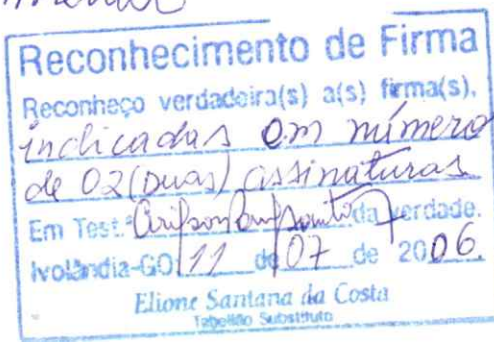 Reconhecimento de Firma
Reconheço verdadeira(s) a(s) firma(s),
indicadas em número
de 02 (Duas) assinaturas
Em Test.º da verdade.
Ivolândia-GO 11 de 07 de 2006.
Elione Santana da Costa
Tabelião Substituto